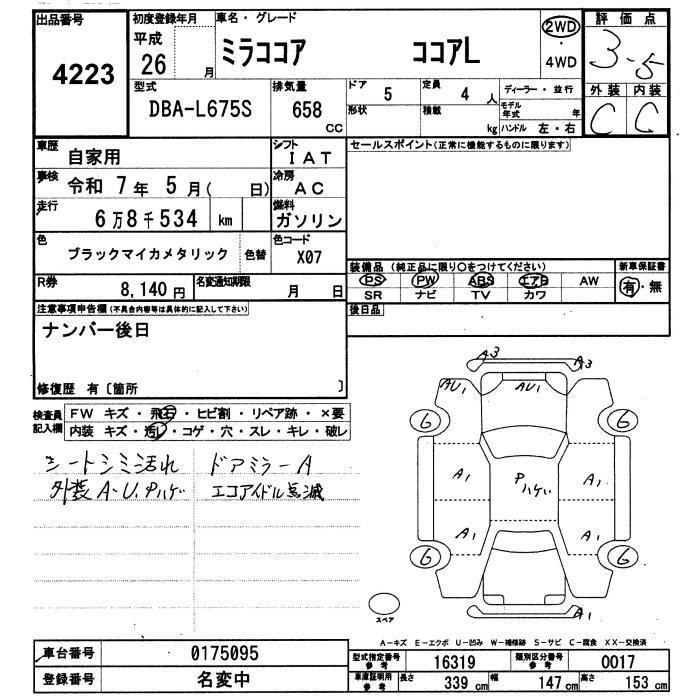 出品番号
4223
初度登録年月
平成
26 月
車名・グレード
ミラココア ココアL
2WD
・
4WD
評価点
3.5
外装 内装
C C
型式
DBA-L675S
排気量
658
cc
ドア
5
定員
4 人
形状
積載
kg
ディーラー・並行
モデル
年式 年
ハンドル 左・右
車歴
自家用
シフト
IAT
車検
令和 7 年 5 月( 日)
冷房
AC
走行
6万8千534 km
燃料
ガソリン
色
ブラックマイカメタリック
色替
色コード
X07
R券
8,140円
名変通知期限
月 日
セールスポイント(正常に機能するものに限ります)
装備品(純正品に限り○をつけてください)
PS PW ABS エアB AW
SR ナビ TV カワ
新車保証書
有・無
後日品
注意事項申告欄(不具合内容等は具体的に記入して下さい)
ナンバー後日
修復歴 有〔箇所 〕
検査員
記入欄
FW キズ・飛石・ヒビ割・リペア跡・×要
内装 キズ・汚レ・コゲ・穴・スレ・キレ・破レ
シートシミ汚れ ドアミラーA
外装A-U.Pハゲ エコアイドル点滅
A3 A3
AU1 AU1 1
6 6
A1 Pハゲ A1
A1 A1
6 6
A1
スペア
A－キズ E－エクボ U－凹み W－補修跡 S－サビ C－腐食 XX－交換済
車台番号
0175095
登録番号
名変中
型式指定番号
参考
16319
類別区分番号
参考
0017
車庫証明用
参考
長さ
339 cm
幅
147 cm
高さ
153 cm